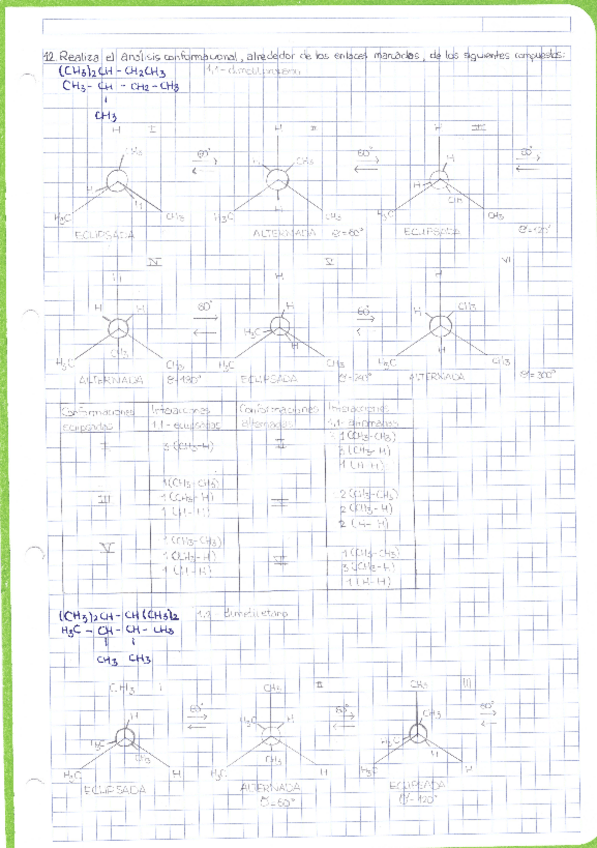 12. Realiza el análisis conformacional, alrededor de los enlaces marcados, de los siguientes compuestos:
(CH3)2CH - CH2CH3
CH3 - CH - CH2 - CH3
CH3
I II III
H H H
CH3 60° H CH3 60° H 60°
H H H H
H3C CH3 H3C CH3 H3C CH3
ECLIPSADA ALTERNADA θ=60° ECLIPSADA θ=120°
IV V VI
H H H
H H 60° H 60° H CH3
H3C H
H3C CH3 CH3 H3C CH3 H3C H CH3
ALTERNADA θ=180° ECLIPSADA θ=240° ALTERNADA θ=300°
Conformaciones eclipsadas Interacciones Conformaciones alternadas Interacciones
I 3 (CH3-H) II 1 (CH3-CH3)
3 (CH3-H)
1 (H-H)
III 1 (CH3-CH3) 2 (CH3-CH3)
1 (CH3-H) 2 (CH3-H)
1 (H-H) 2 (H-H)
V 1 (CH3-CH3) 1 (CH3-CH3)
1 (CH3-H) 3 (CH3-H)
1 (H-H) 1 (H-H)
(CH3)2CH - CH(CH3)2
H3C - CH - CH - CH3
CH3 CH3
CH3 I CH3 II CH3 III
H 60° H3C H 60° CH3 60°
H3C CH3 H3C H
H3C H H3C CH3 H H3C H
ECLIPSADA ALTERNADA ECLIPSADA
θ=60° θ=120°